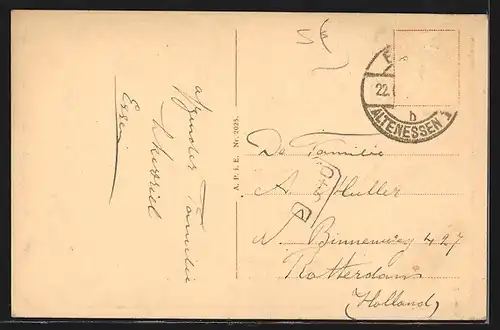 afzender Familie
Essen
A. P. i. E. Nr. 2025.
22.
b
ALTENESSEN 1
De Familie
A Muller
N. Binnenweg 427
Rotterdam
(Holland)